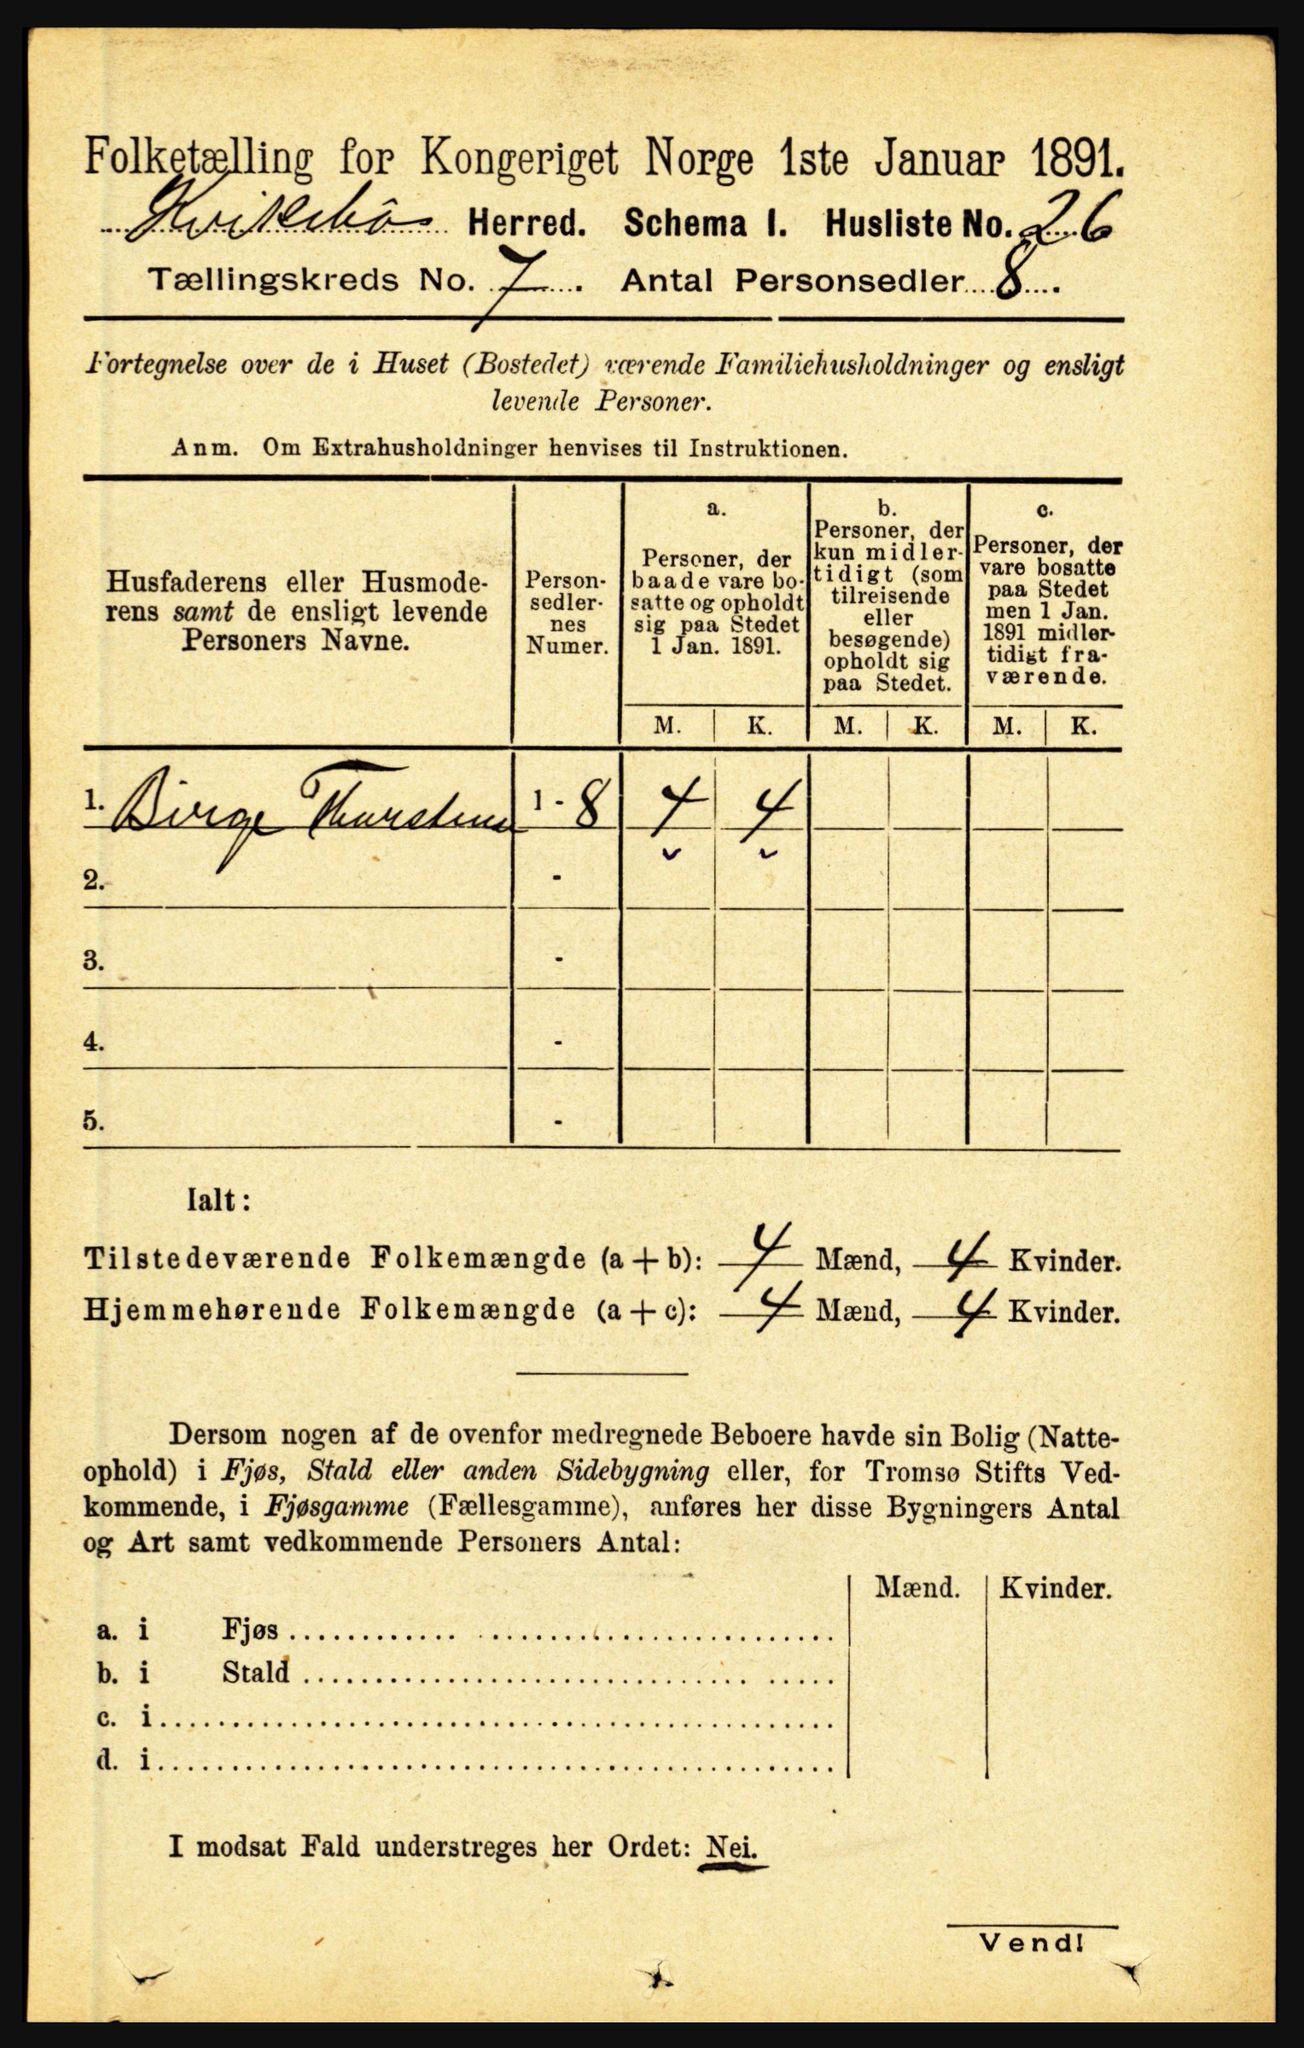 Folketælling for Kongeriget Norge 1ste Januar 1891.
Kvikebø Herred. Schema I. Husliste No. 26
Tællingskreds No. 7. Antal Personsedler 8.
Fortegnelse over de i Huset (Bostedet) værende Familiehusholdninger og ensligt
levende Personer.
Anm. Om Extrahusholdninger henvises til Instruktionen.
Husfaderens eller Husmode-
rens samt de ensligt levende
Personers Navne.
Person-
sedler-
nes
Numer.
a.
Personer, der
baade vare bo-
satte og opholdt
sig paa Stedet
1 Jan. 1891.
b.
Personer, der
kun midler-
tidigt (som
tilreisende
eller
besøgende)
opholdt sig
paa Stedet.
c.
Personer, der
vare bosatte
paa Stedet
men 1 Jan.
1891 midler-
tidigt fra-
værende.
M. K. M. K. M. K.
1. Birge Thorstens 1 - 8 4 4
2. -
3. -
4. -
5. -
Ialt:
Tilstedeværende Folkemængde (a + b): 4 Mænd, 4 Kvinder.
Hjemmehørende Folkemængde (a + c): 4 Mænd, 4 Kvinder.
Dersom nogen af de ovenfor medregnede Beboere havde sin Bolig (Natte-
ophold) i Fjøs, Stald eller anden Sidebygning eller, for Tromsø Stifts Ved-
kommende, i Fjøsgamme (Fællesgamme), anføres her disse Bygningers Antal
og Art samt vedkommende Personers Antal:
Mænd. Kvinder.
a. i Fjøs
b. i Stald
c. i
d. i
I modsat Fald understreges her Ordet: Nei.
Vend!